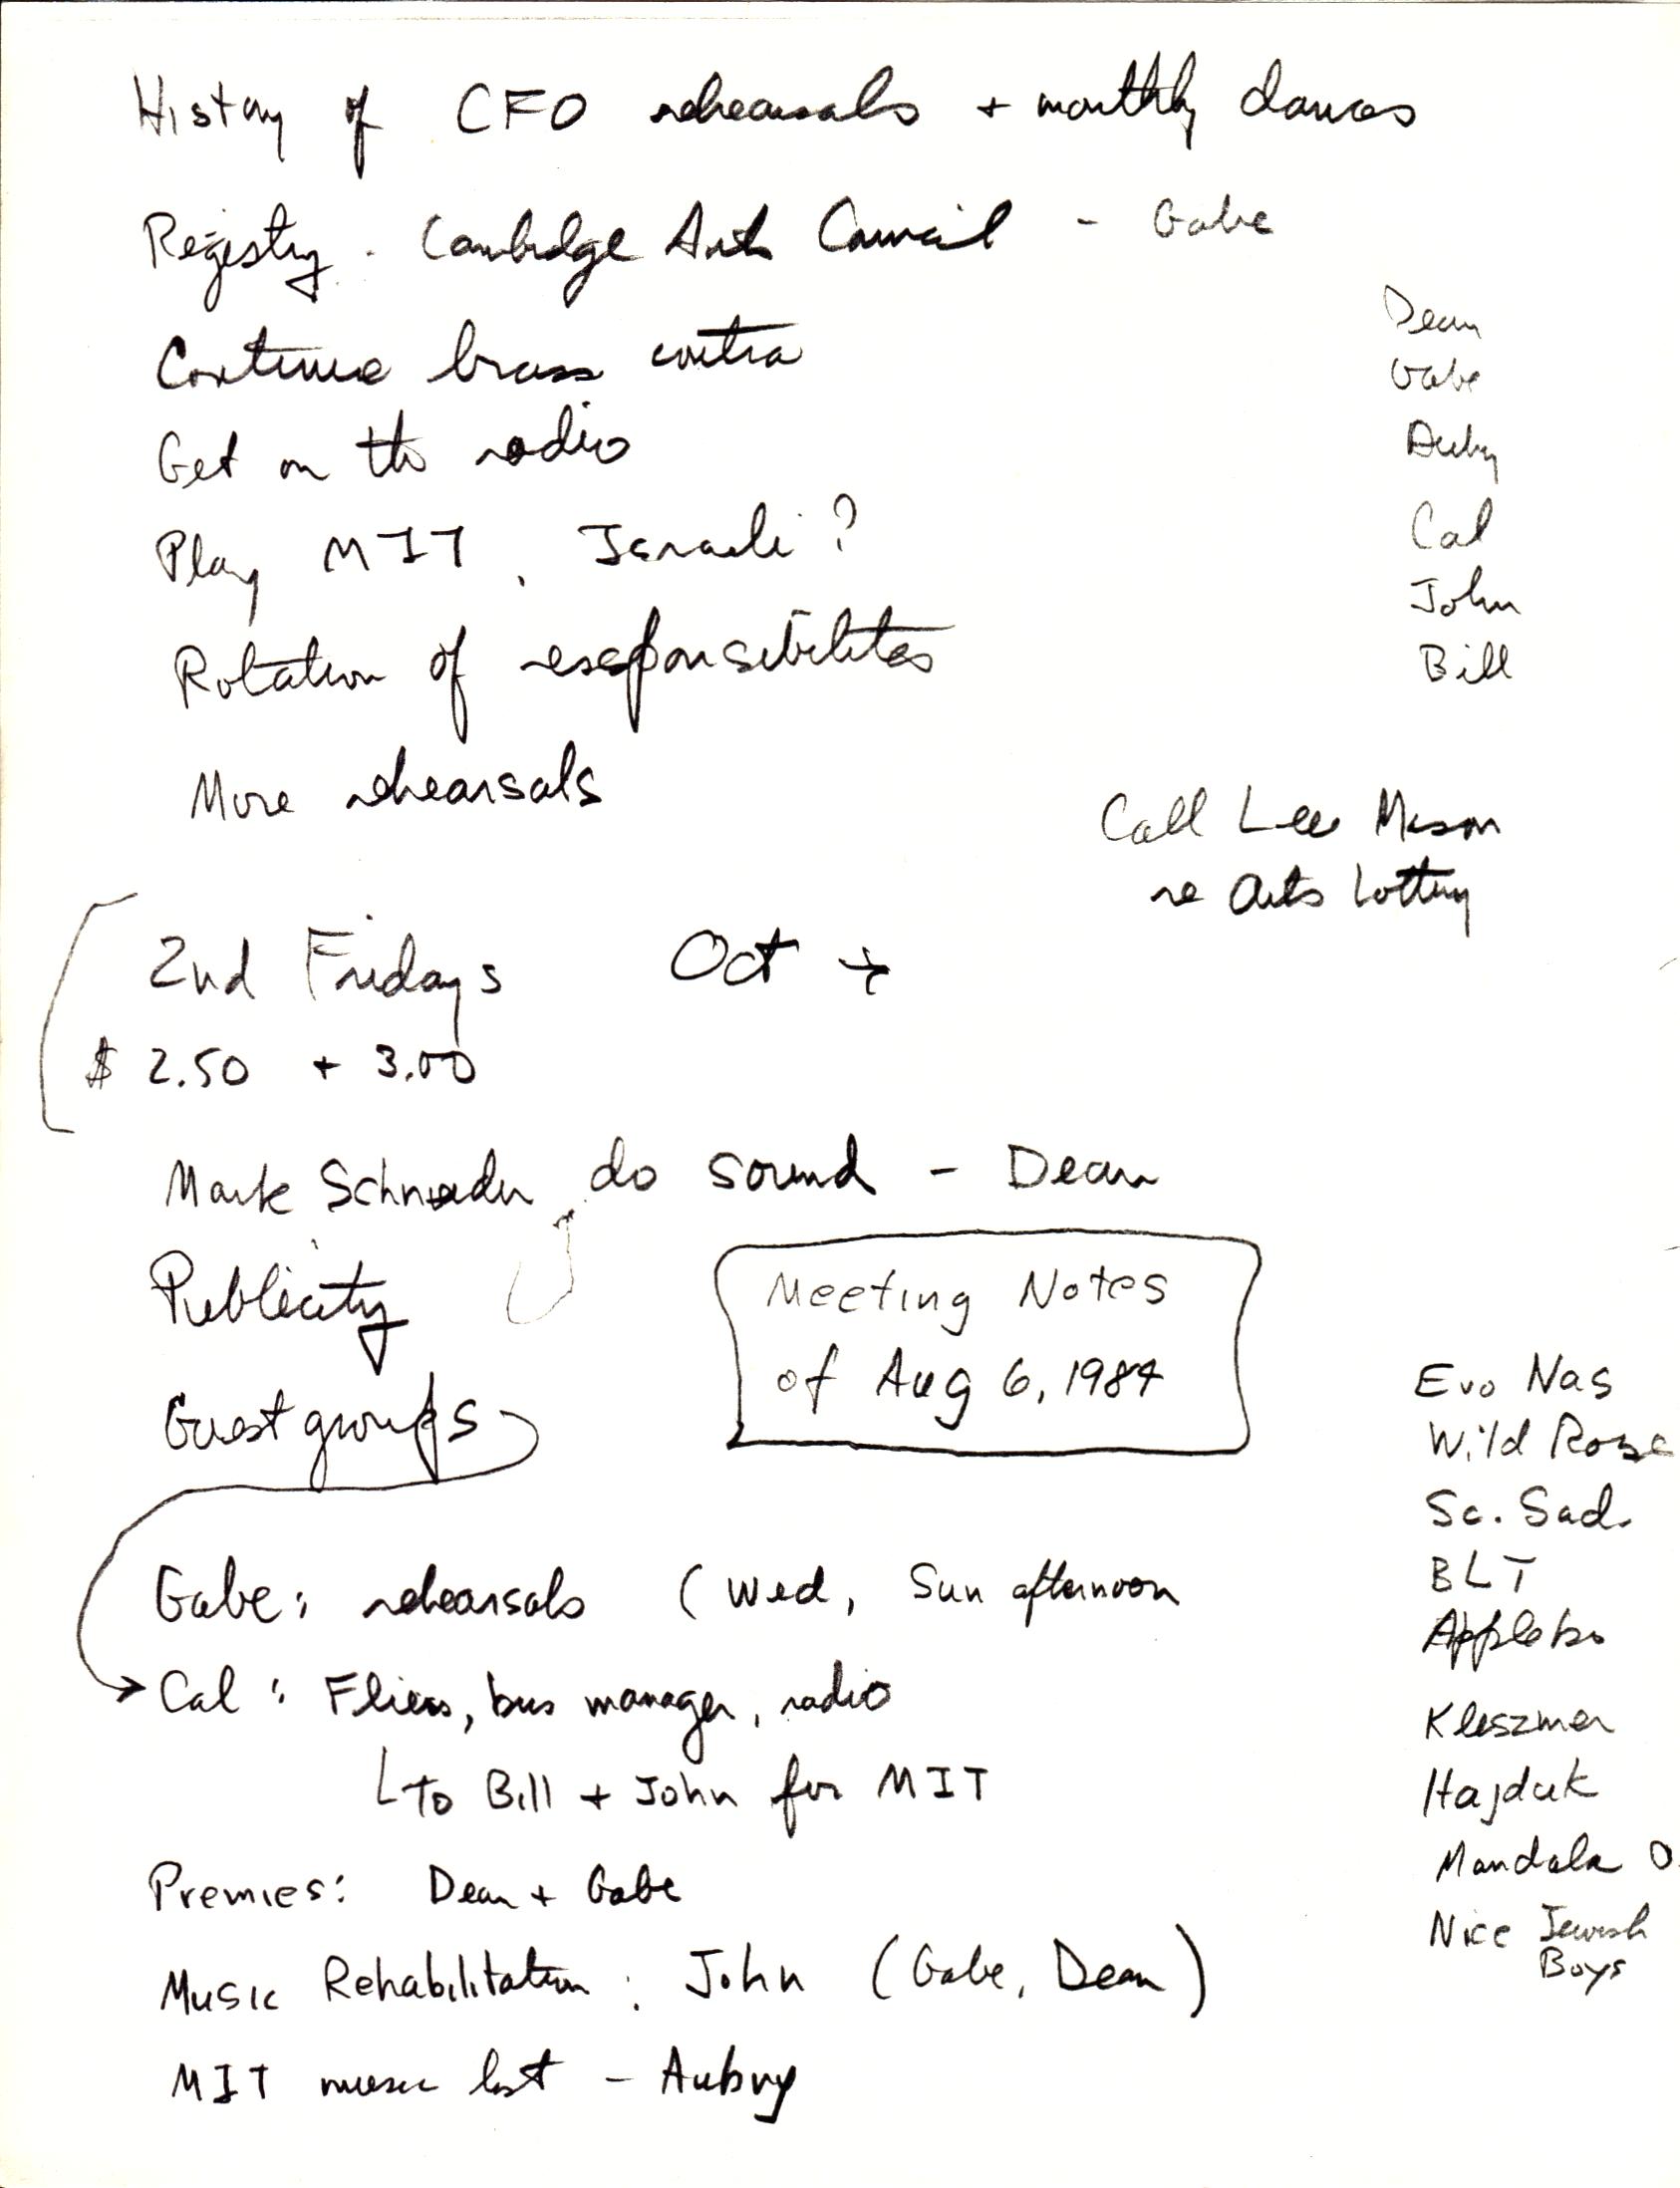 History of CFO rehearsals + monthly dances
Registry - Cambridge Arts Council - Gabe
Continue brass contra
Get on the radio
Play MIT, Israeli?
Rotation of responsibilities
More rehearsals
Dean
Gabe
Aubry
Cal
John
Bill
Call Lee Mason
re Arts Lottery
2nd Fridays Oct →
$ 2.50 + 3.00
Mark Schneider do sound - Dean
Publicity
Guest groups
Meeting Notes
of Aug 6, 1984
Gabe: rehearsals (Wed, Sun afternoon
Cal: Fliers, bus manager, radio
To Bill + John for MIT
Premies: Dean + Gabe
Music Rehabilitation: John (Gabe, Dean)
MIT music list - Aubry
Evo Nas
Wild Rose
Sc. Sad.
BLT
Kleszmer
Hajduk
Mandala O
Nice Jewish
Boys